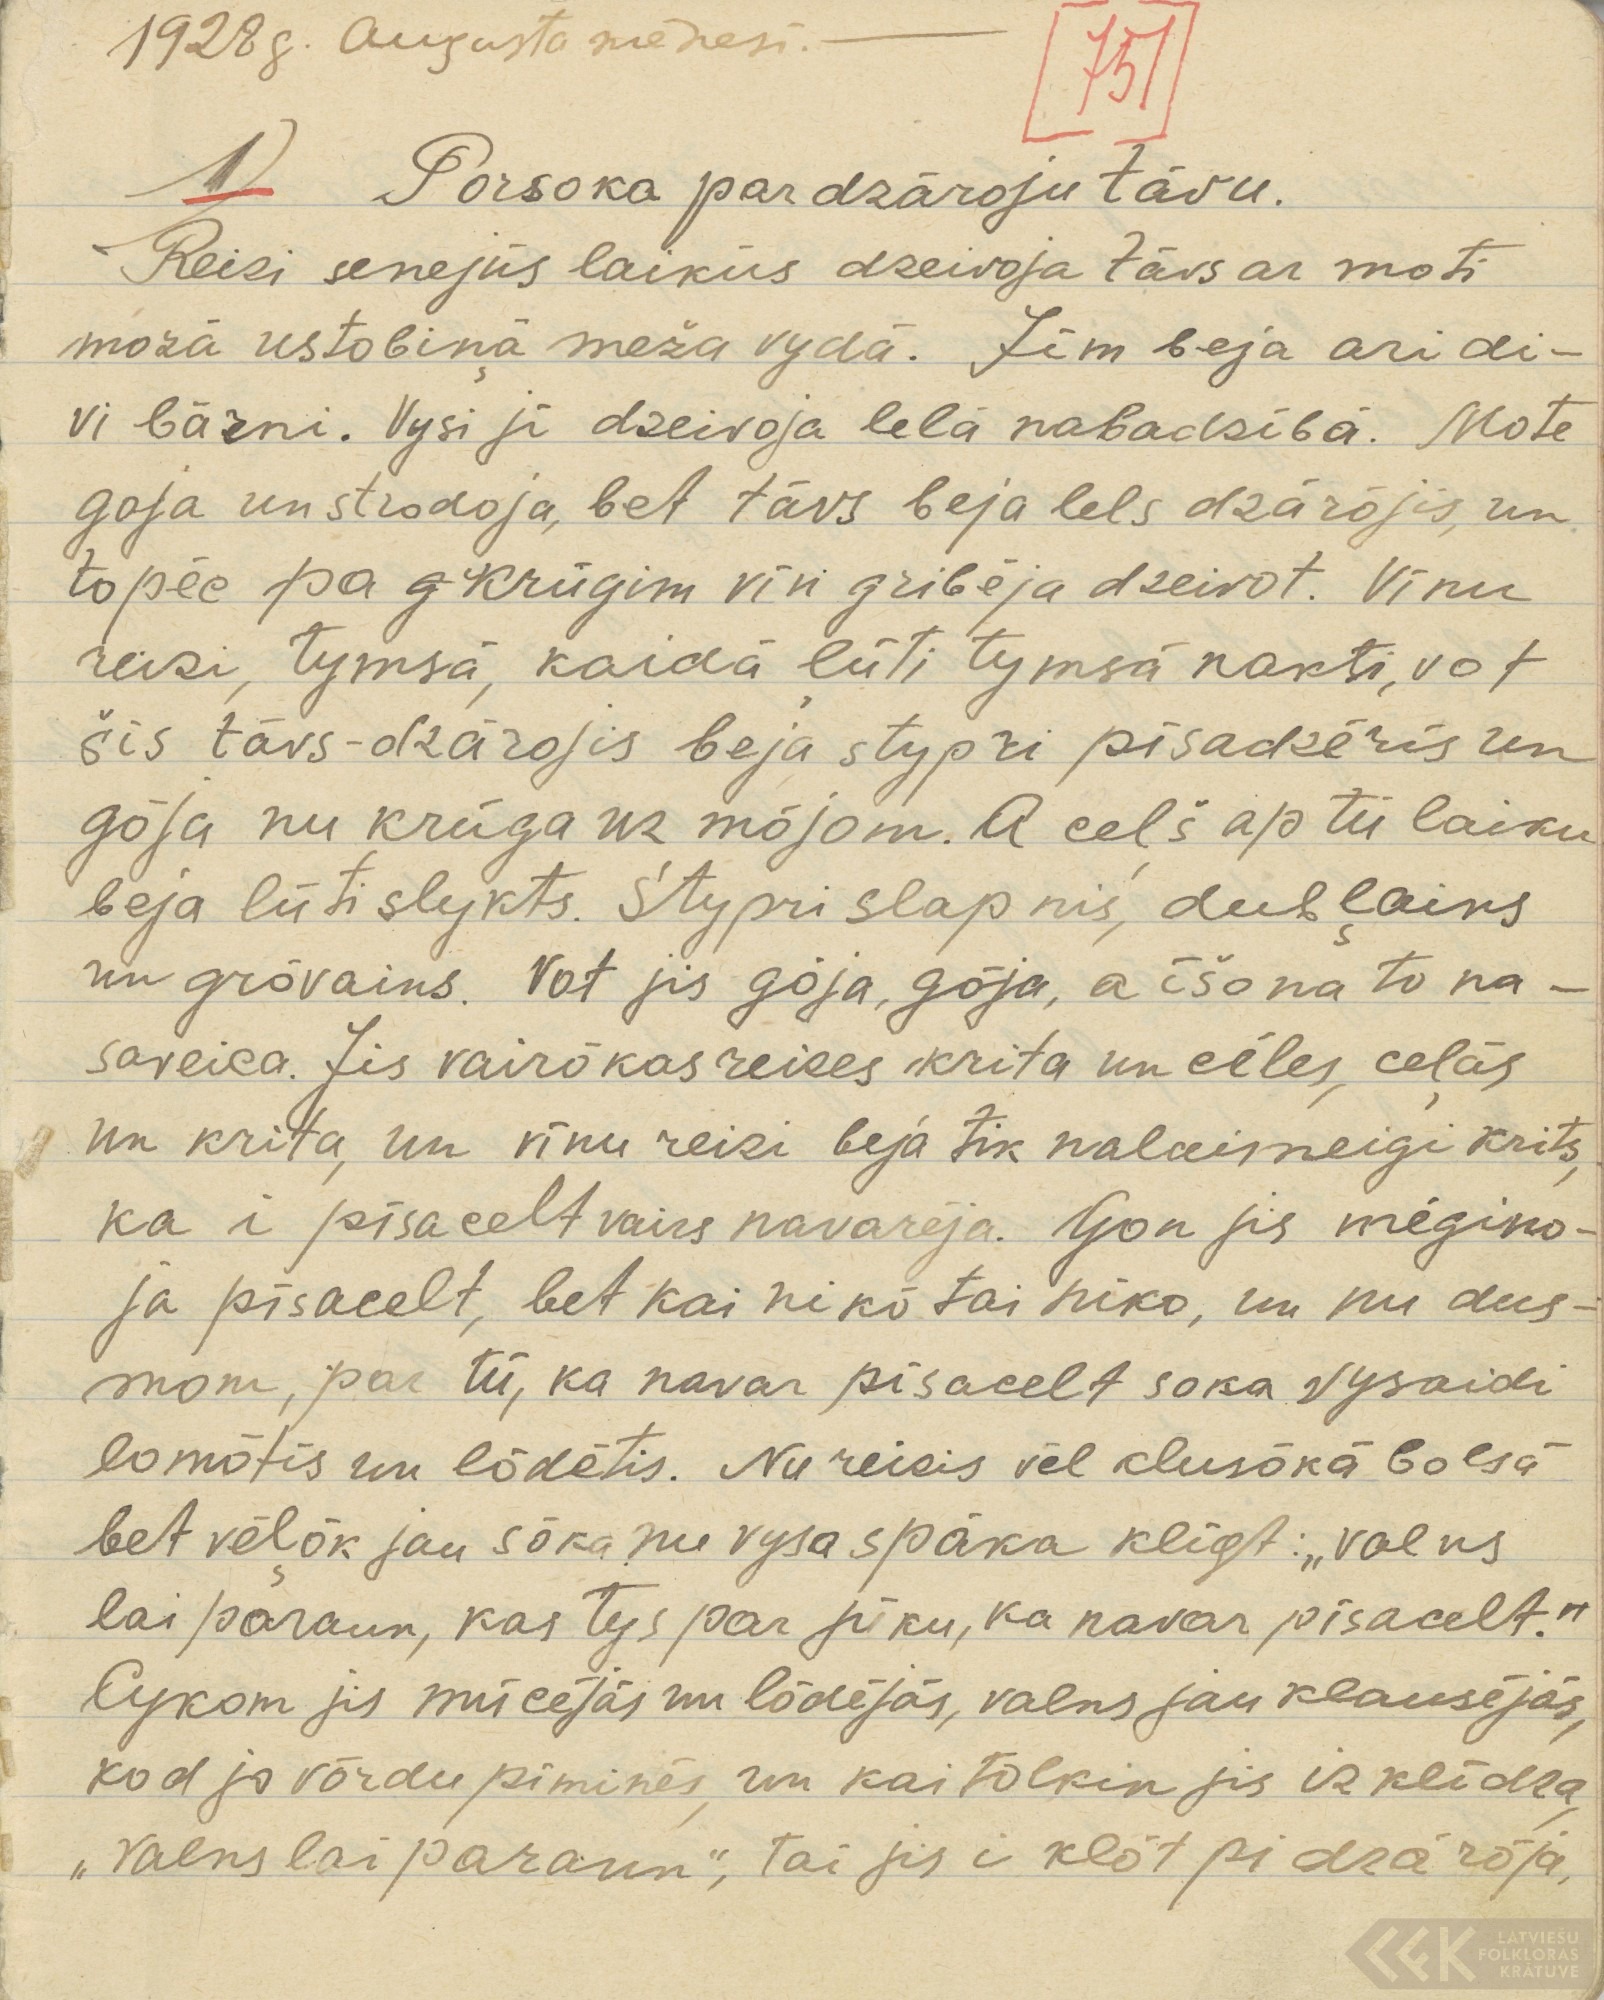 1928 g. Augusta mēnesī. —
[751]
1) Porsoka par dzāroju tāvu.
Reizi senejūs laikūs dzeivoja tāvs ar moti
mozā ustobiņā meža vydā. Jīm beja ari di-
vi bārni. Vysi jī dzeivoja lelā nabadzībā. Mote
goja un strodoja, bet tāvs beja lels dzārōjis, un
topēc pa krūgim vīn gribēja dzeivot. Vīnu
reizi, tymsā, kaidā ļūti tymsā nakti, vot
šis tāvs-dzārojis beja stypri pīsadzēris un
gōja nu krūga uz mōjom. A ceļš ap tū laiku
beja lūti slykts. Stypri slapnis, dubļains
un grōvains. Vot jis gōja, gōja, a īšona to na-
saveica. Jis vairōkas reizes krita un cēles, ceļās
un krita, un vīnu reizi beja tik nalaimeigi krits,
ka i pīsacelt vairs navarēja. Gon jis mēgino-
ja pīsacelt, bet kai nikō tai niko, un nu dus-
mom, par tū, ka navar pīsacelt soka vysaidi
lomōtīs un lōdētīs. Nu reizis vēl klusōkā bolsā
bet vēļōk jau sōka nu vysa spāka klīgt: „valns
lai paraun, kas tys par jūku, ka navar pīsacelt."
Cykom jis mūcējās un lōdējās, valns jau klausējās,
kod jo vōrdu pīminēs, un kai tolkin jis izklīdza,
„valns lai paraun“, tai jis i klōt pi dzārōja,
LATVIEŠU
FOLKLORAS
KRĀTUVE